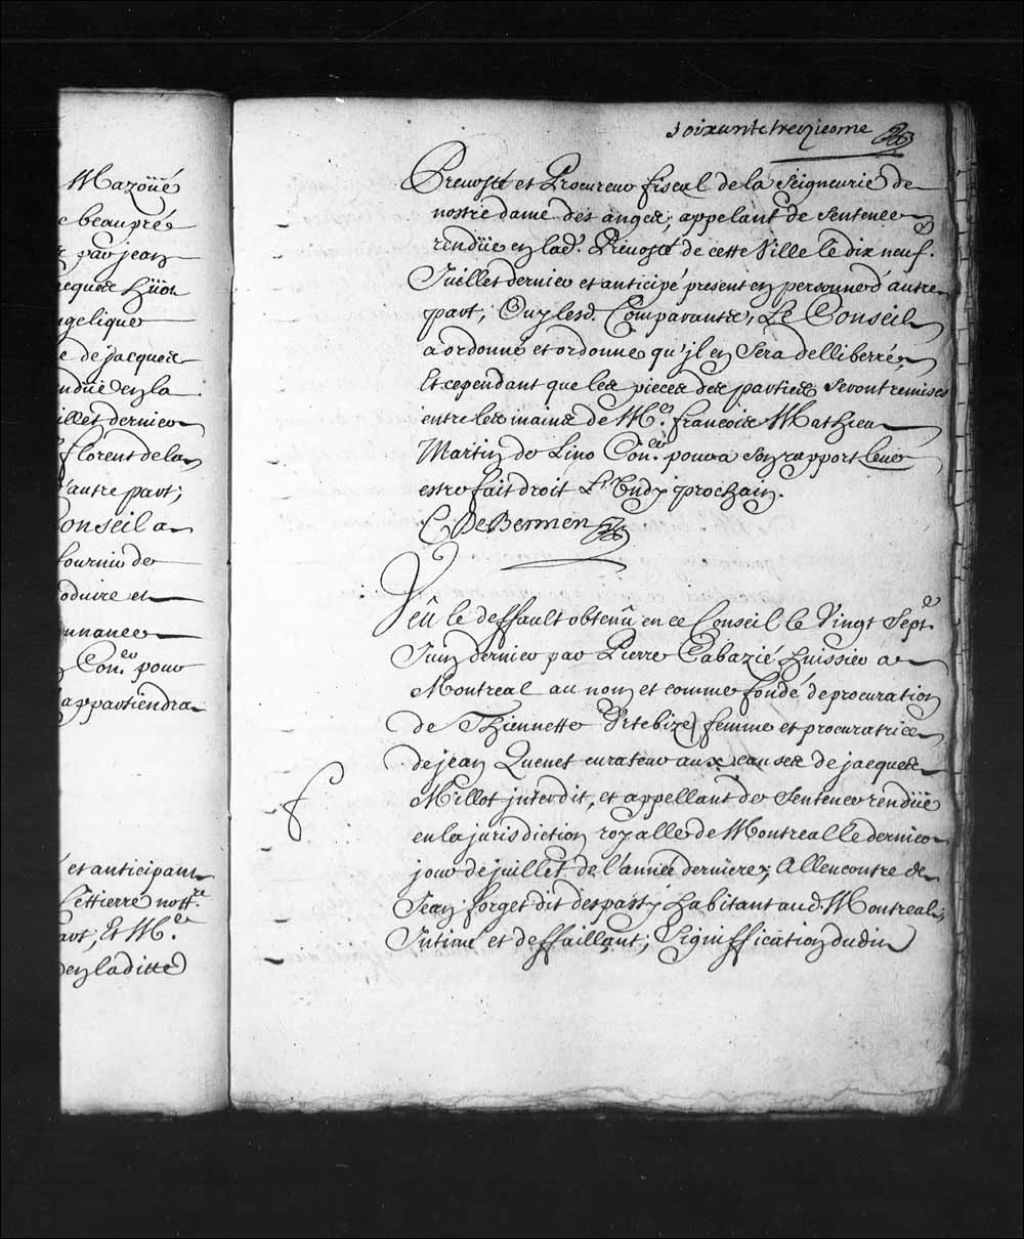 Mazoüé
e beaupré
par jean
acques hüot
ngelique
e de jacques
ndüe en la
illet dernier
florent de la
l'autre part;
Conseil a
fournir de
oduire et
nnance
Con.er pour
appartiendra
et anticipant
Cettierre nott.re
part, Et M.e
en laditte
soixante treiziesme
Prevosté et Procureur fiscal de la Seigneurie de
nostre dame des anges, appelant de Sentence
rendüe en lad. Prevosté de cette Ville le dix neuf.e
Juillet dernier et anticipé present en personne d'autre
part; Ouy lesd. Comparants, Le Conseil
a ordonné et ordonne qu'jl en Sera delliberré,
Et cependant que les pieces des parties Seront remises
entre les mains de M.e francois Mathieu
Martin de Lino Con.er pour a Son rapport leur
estre fait droit Lundy prochain.
C De Bermen
Veü le deffault obtenü en ce Conseil le Vingt Sept.e
Juin dernier par Pierre Cabazié huissier a
Montreal au nom et comme fondé de procuration
de Thiennette Urtebize femme et procuratrice
de jean Quenet curateur aux causes de jacques
Millot jnterdit, et appellant de Sentence rendüe
en la jurisdiction royalle de Montreal le dernier
jour de juillet de l'année derniere, Allencontre de
Jean forget dit despasty habitant aud. Montreal,
Intimé et deffaillant; Signiffication dudit